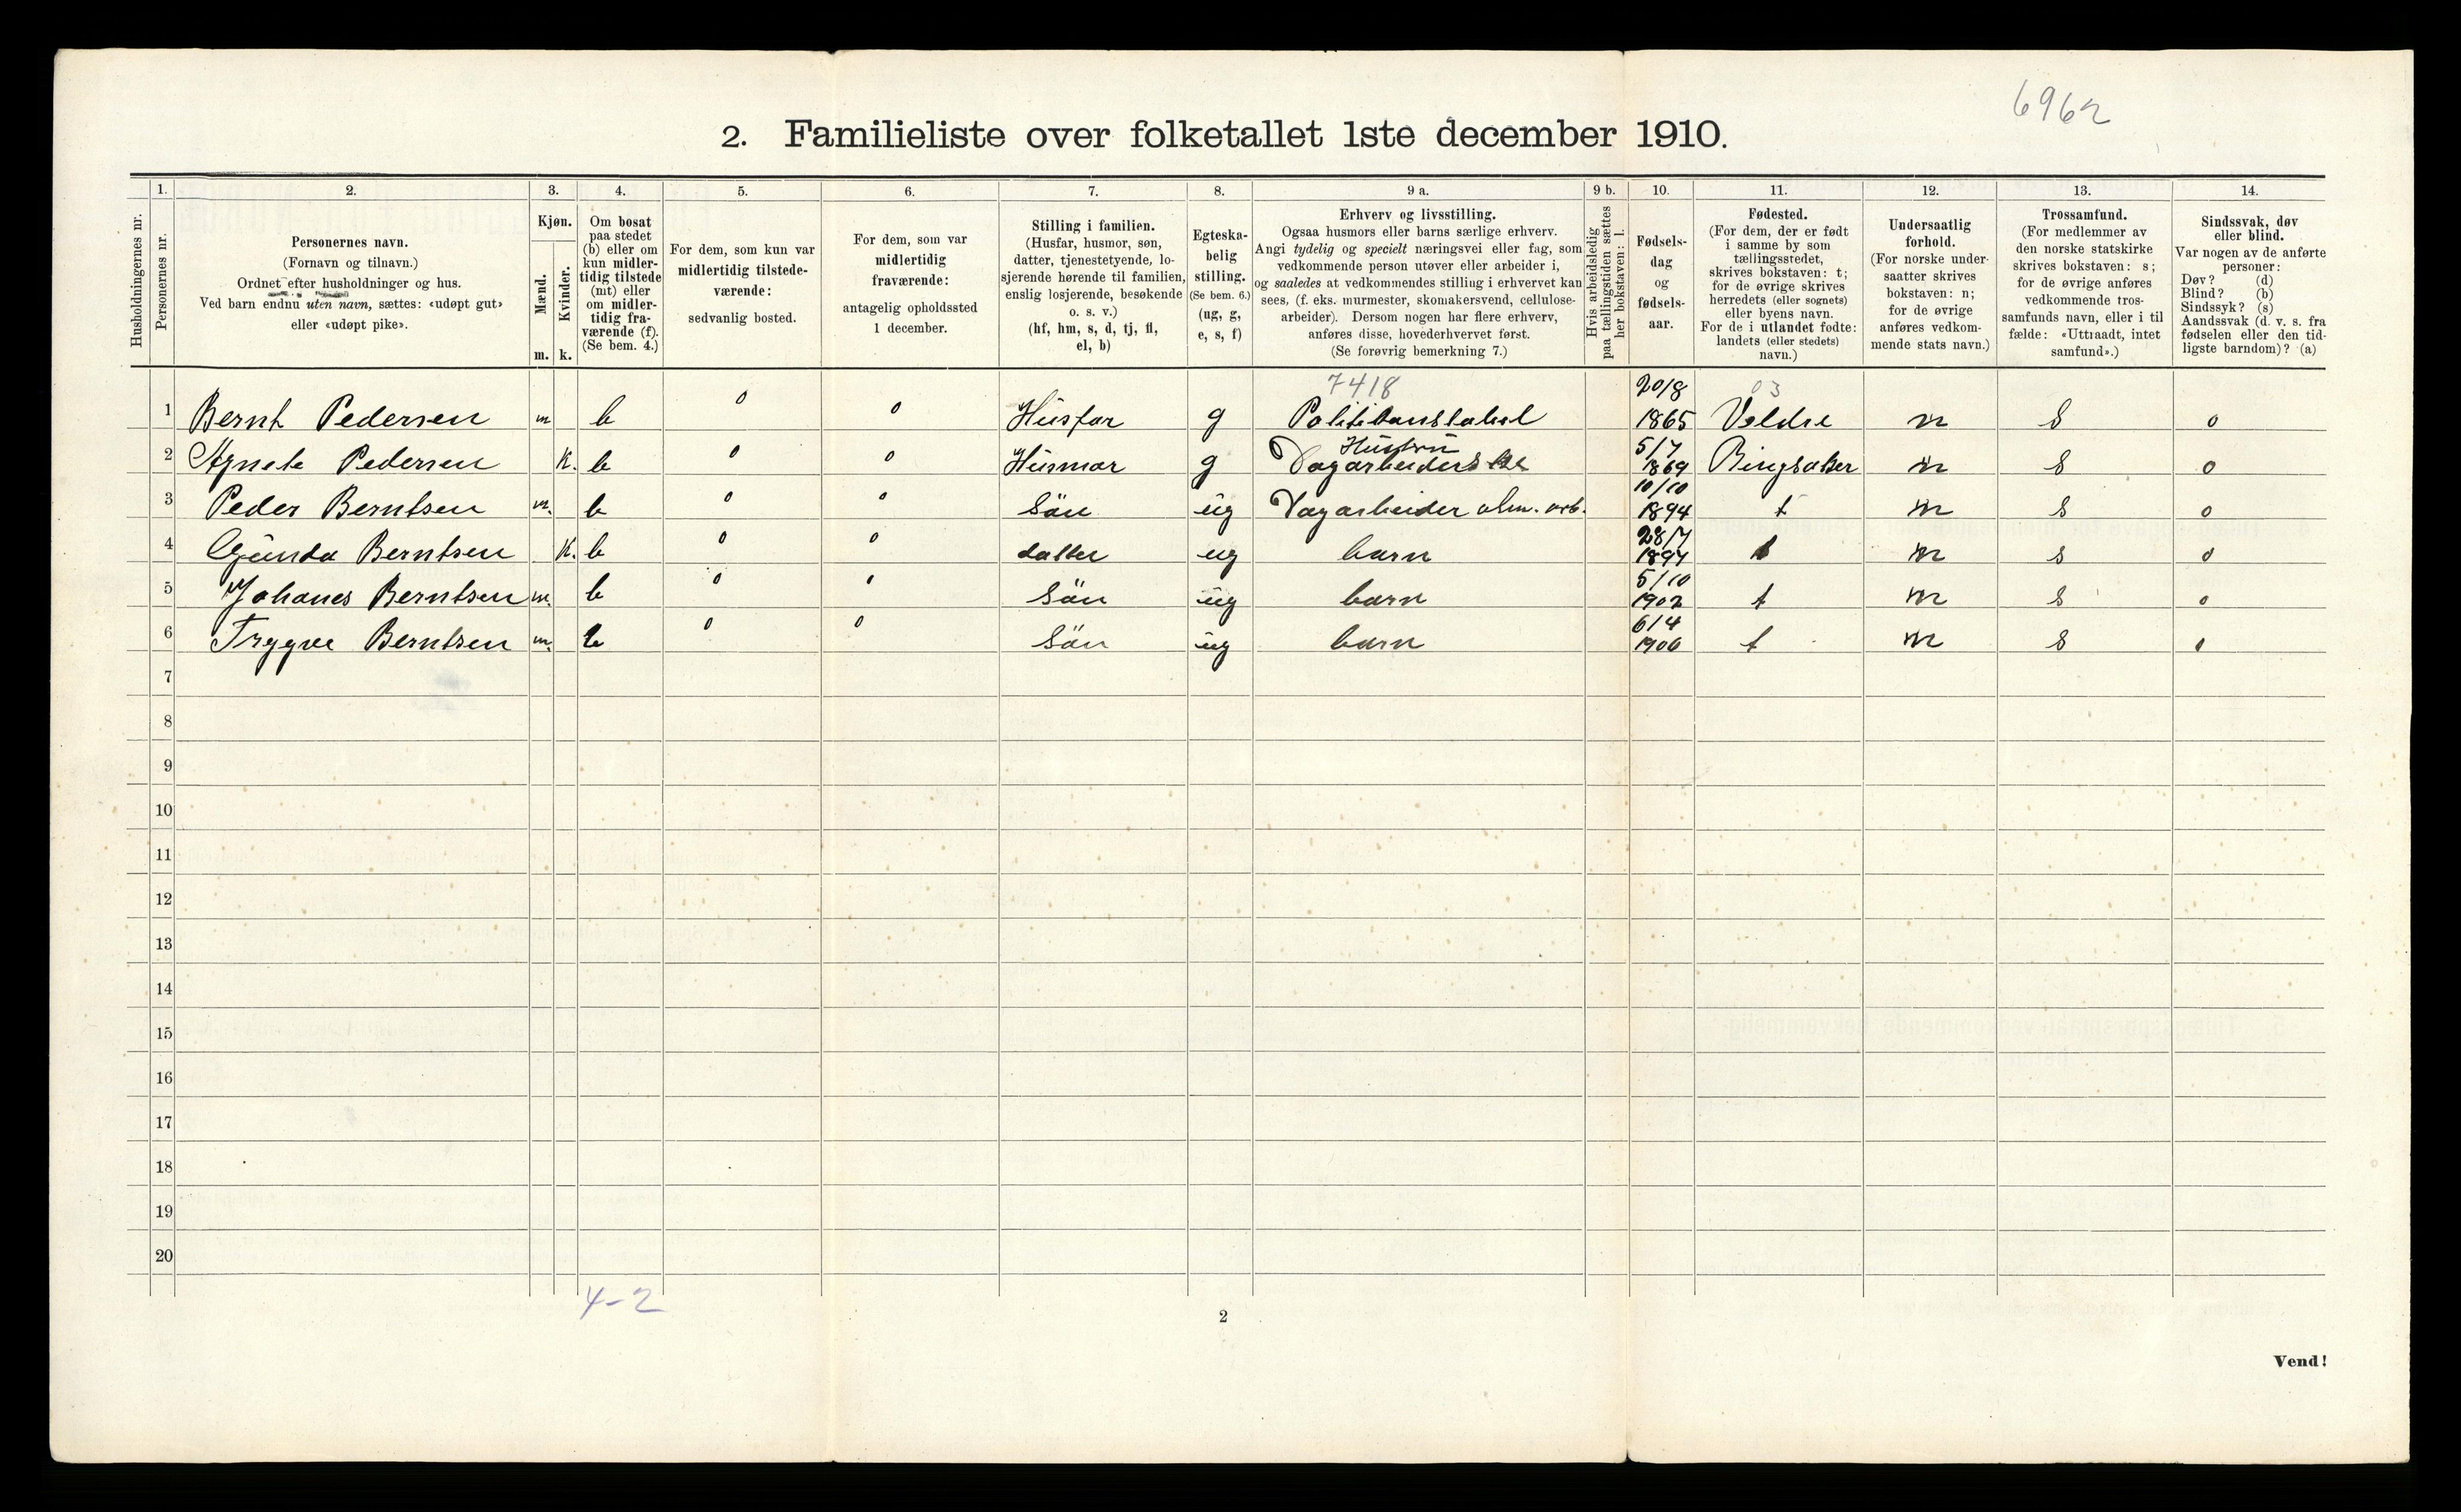 6962
2. Familieliste over folketallet 1ste december 1910.
Husholdningernes nr.
1.
Personernes nr.
2.
Personernes navn.
(Fornavn og tilnavn.)
Ordnet efter husholdninger og hus.
Ved barn endnu uten navn, sættes: «udøpt gut»
eller «udøpt pike».
3.
Kjøn.
Mænd.
m.
Kvinder.
k.
4.
Om bosat
paa stedet
(b) eller om
kun midler-
tidig tilstede
(mt) eller
om midler-
tidig fra-
værende (f).
(Se bem. 4.)
5.
For dem, som kun var
midlertidig tilstede-
værende:
sedvanlig bosted.
6.
For dem, som var
midlertidig
fraværende:
antagelig opholdssted
1 december.
7.
Stilling i familien.
(Husfar, husmor, søn,
datter, tjenestetyende, lo-
sjerende hørende til familien,
enslig losjerende, besøkende
o. s. v.)
(hf, hm, s, d, tj, fl,
el, b)
8.
Egteska-
belig
stilling.
(Se bem. 6.)
(ug, g,
e, s, f)
9 a.
Erhverv og livsstilling.
Ogsaa husmors eller barns særlige erhverv.
Angi tydelig og specielt næringsvei eller fag, som
vedkommende person utøver eller arbeider i,
og saaledes at vedkommendes stilling i erhvervet kan
sees, (f. eks. murmester, skomakersvend, cellulose-
arbeider). Dersom nogen har flere erhverv,
anføres disse, hovederhvervet først.
(Se forøvrig bemerkning 7.)
9 b.
Hvis arbeidsledig
paa tællingstiden sættes
her bokstaven: l.
10.
Fødsels-
dag
og
fødsels-
aar.
11.
Fødested.
(For dem, der er født
i samme by som
tællingsstedet,
skrives bokstaven: t;
for de øvrige skrives
herredets (eller sognets)
eller byens navn.
For de i utlandet fødte:
landets (eller stedets)
navn.)
12.
Undersaatlig
forhold.
(For norske under-
saatter skrives
bokstaven: n;
for de øvrige
anføres vedkom-
mende stats navn.)
13.
Trossamfund.
(For medlemmer av
den norske statskirke
skrives bokstaven: s;
for de øvrige anføres
vedkommende tros-
samfunds navn, eller i til
fælde: «Uttraadt, intet
samfund».)
14.
Sindssvak, døv
eller blind.
Var nogen av de anførte
personer:
Døv? (d)
Blind? (b)
Sindssyk? (s)
Aandssvak (d. v. s. fra
fødselen eller den tid-
ligste barndom)? (a)
7418 20/8 03
1 Bernt Pedersen m b 0 0 Husfar g Politikonstabel 1865 Veldre n s 0
Hustru 5/7
2 Agnete Pedersen K. b 0 0 Husmor g Dagarbeiderske 1869 Ringsaker n s 0
10/10
3 Peder Berntsen m. b 0 0 Sön ug Dagarbeider alm. arb. 1894 t n s 0
28/7
4 Gunda Berntsen K. b 0 0 datter ug barn 1897 t n s 0
5/10
5 Johanes Berntsen m. b 0 0 Sön ug barn 1902 t n s 0
6/4
6 Trygve Berntsen m. b 0 0 Sön ug barn 1906 t n s 0
7
8
9
10
11
12
13
14
15
16
17
18
19
20
4-2
2
Vend!